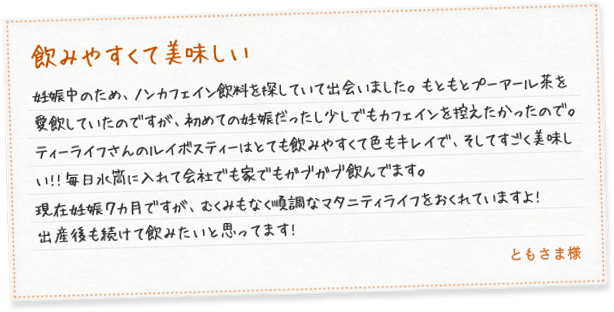 飲みやすくて美味しい
妊娠中のため、ノンカフェイン飲料を探していて出会いました。もともとプーアール茶を
愛飲していたのですが、初めての妊娠だったし少しでもカフェインを控えたかったので。
ティーライフさんのルイボスティーはとても飲みやすくて色もキレイで、そしてすごく美味し
い!!毎日水筒に入れて会社でも家でもガブガブ飲んでます。
現在妊娠7カ月ですが、むくみもなく順調なマタニティライフをおくれていますよ!
出産後も続けて飲みたいと思ってます!
ともさま様